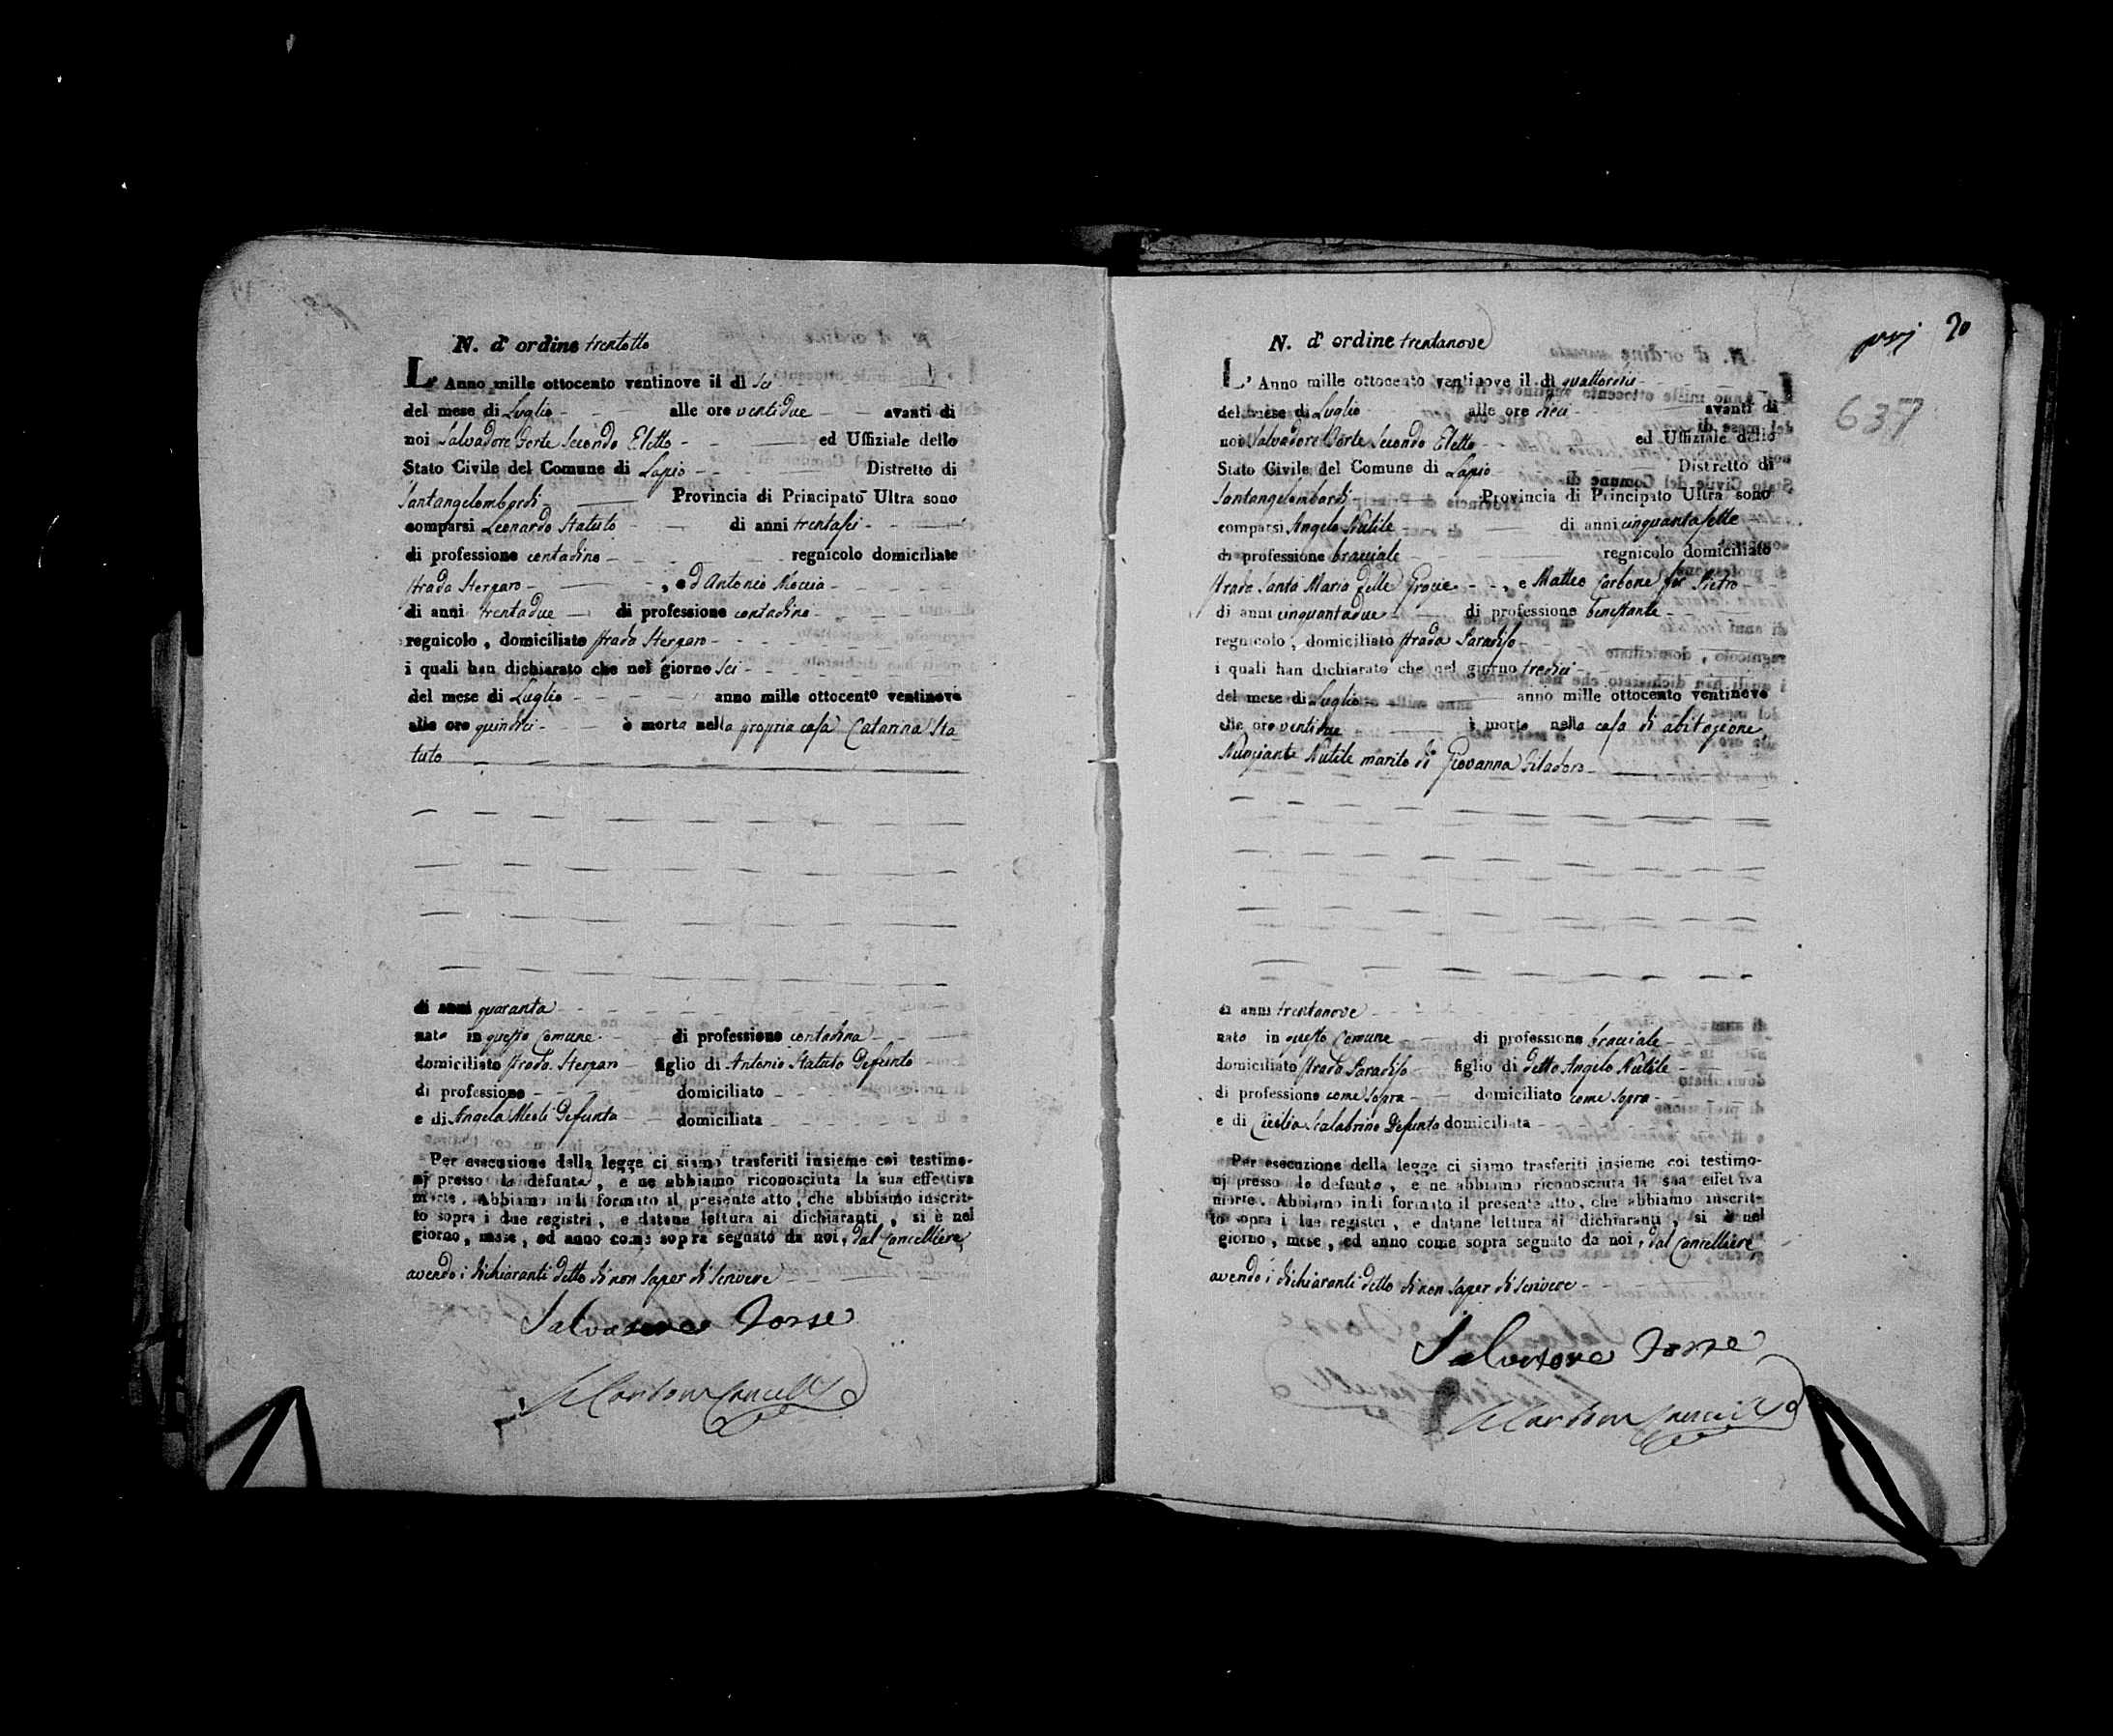 N. d' ordine trentotto
L' Anno mille ottocento ventinove il di sei
del mese di Luglio alle ore ventidue avanti di
noi Salvadore Forte Secondo Eletto ed Uffiziale dello
Stato Civile del Comune di Lapio Distretto di
Santangelombardi Provincia di Principato Ultra sono
comparsi Leonardo Statuto di anni trentasei
di professione contadino regnicolo domiciliato
strada Sterparo , e d'Antonio Moccia
di anni trentadue di professione contadino
regnicolo , domiciliato strada Sterparo
i quali han dichiarato che nel giorno sei
del mese di Luglio anno mille ottocento ventinove
alle ore quindici è morta nella propria casa Catarina Sta-
tuto
di anni quaranta
nato in questo Comune di professione contadina
domiciliato strada Sterparo figlio di Antonio Statuto Defunto
di professione domiciliato
e di Angela Meoli Defunta domiciliata
Per esecuzione della legge ci siamo trasferiti insieme coi testimo-
nj presso la defunta , e ne abbiamo riconosciuta la sua effettiva
morte . Abbiamo indi formato il presente atto , che abbiamo inscrit-
to sopra i due registri , e datane lettura ai dichiaranti , si è nel
giorno , mese , ed anno come sopra segnato da noi , dal Cancelliere
avendo i dichiaranti detto di non saper di scrivere
Salvatore Forte
Carbone Cancell
N. d' ordine trentanove
L' Anno mille ottocento ventinove il di quattordici
del mese di Luglio alle ore dieci avanti di
noi Salvadore Forte Secondo Eletto ed Uffiziale dello
Stato Civile del Comune di Lapio Distretto di
Santangelombardi Provincia di Principato Ultra sono
comparsi Angelo Nutile di anni cinquantasette
di professione bracciale regnicolo domiciliato
strada Santa Maria delle Grazie , e Matteo Carbone fu Pietro
di anni cinquantadue di professione benestante
regnicolo , domiciliato strada Paradiso
i quali han dichiarato che nel giorno tredici
del mese di Luglio anno mille ottocento ventinove
alle ore ventidue è morto nella casa di abitazione
Nunziante Nutile marito di Giovanna Filadoro
di anni trentanove
nato in questo Comune di professione bracciale
domiciliato strada Paradiso figlio di detto Angelo Nutile
di professione come sopra domiciliato come sopra
e di Cicilia Scalabrino Defunta domiciliata
Per esecuzione della legge ci siamo trasferiti insieme coi testimo-
nj presso lo defunto , e ne abbiamo riconosciuta la sua effettiva
morte . Abbiamo indi formato il presente atto , che abbiamo inscrit-
to sopra i due registri , e datane lettura ai dichiaranti , si è nel
giorno , mese , ed anno come sopra segnato da noi , dal Cancelliere
avendo i dichiaranti detto di non saper di scrivere
Salvatore Forte
Carbone Cancell
20
637